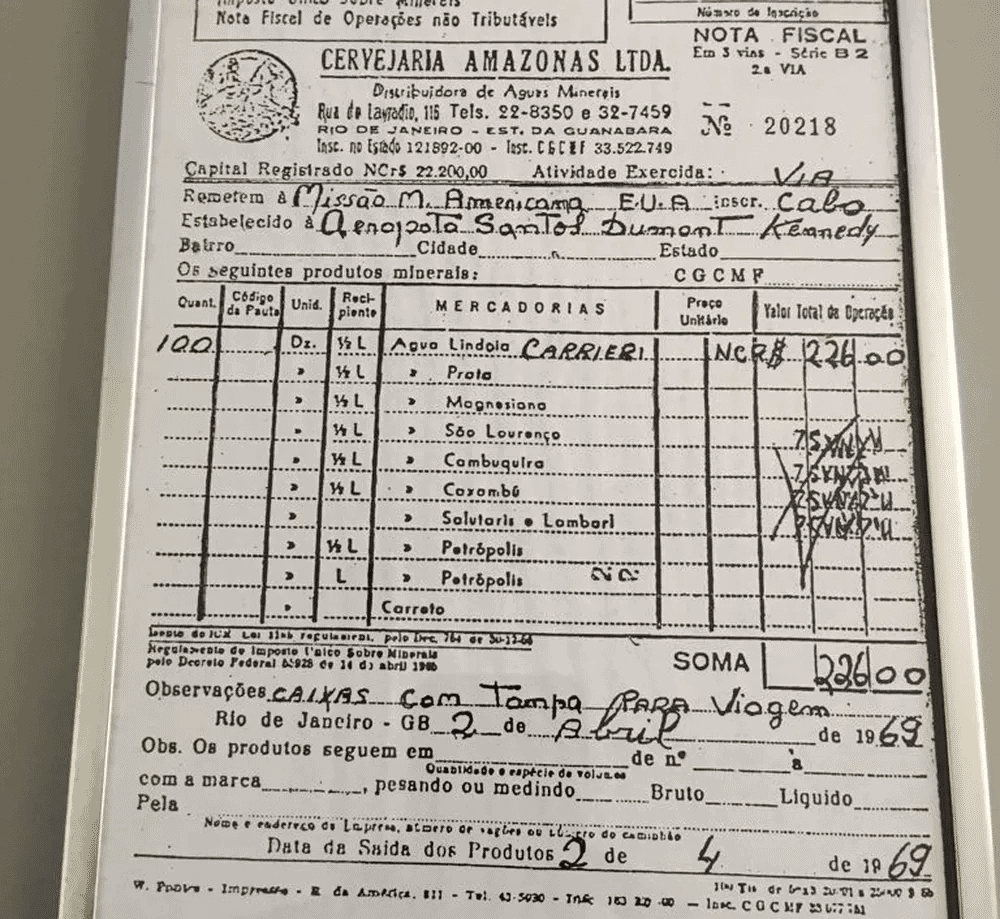 Imposto Único Sobre Minerais
Nota Fiscal de Operações não Tributáveis
Número de Inscrição
NOTA FISCAL
Em 3 vias - Série B 2
2a VIA
Nº 20218
CERVEJARIA AMAZONAS LTDA.
Distribuidora de Aguas Minereis
Rua do Lavradio, 116 Tels. 22-8350 e 32-7459
RIO DE JANEIRO - EST. DA GUANABARA
Insc. no Estado 121892-00 - Insc. CGCMF 33.522.749
Capital Registrado NCr$ 22.200,00 Atividade Exercida: VIA
Remetem à Missão M. Americana E.U.A inscr. Cabo
Estabelecido à Aeropota Santos Dumont Kennedy
Bairro Cidade Estado
Os seguintes produtos minerais: CGCMF
Quant. Código da Pauta Unid. Recipiente MERCADORIAS Preço Unitário Valor Total da Operação
100 Dz. ½ L Agua Lindoia CARRIERI NCR$ 226 00
» ½ L » Prata
» ½ L » Magnesiana
» ½ L » São Lourenço
» ½ L » Cambuquira
» ½ L » Caxambú
» » Salutaris e Lambari
» ½ L » Petrópolis
» L » Petrópolis
» Carreto
Regulamento do Imposto Unico Sobre Minerais
pelo Decreto Federal de 14 de abril
SOMA 226 00
Observações CAIXAS com Tampa PARA Viagem
Rio de Janeiro - GB 2 de Abril de 1969
Obs. Os produtos seguem em de nº à
Quantidade e espécie de volumes
com a marca , pesando ou medindo Bruto Liquido
Pela
Nome e endereço da Empresa, número de vagões ou do caminhão
Data da Saida dos Produtos 2 de 4 de 1969
Impressão - R. da América, 211 - Tel. 43-5030